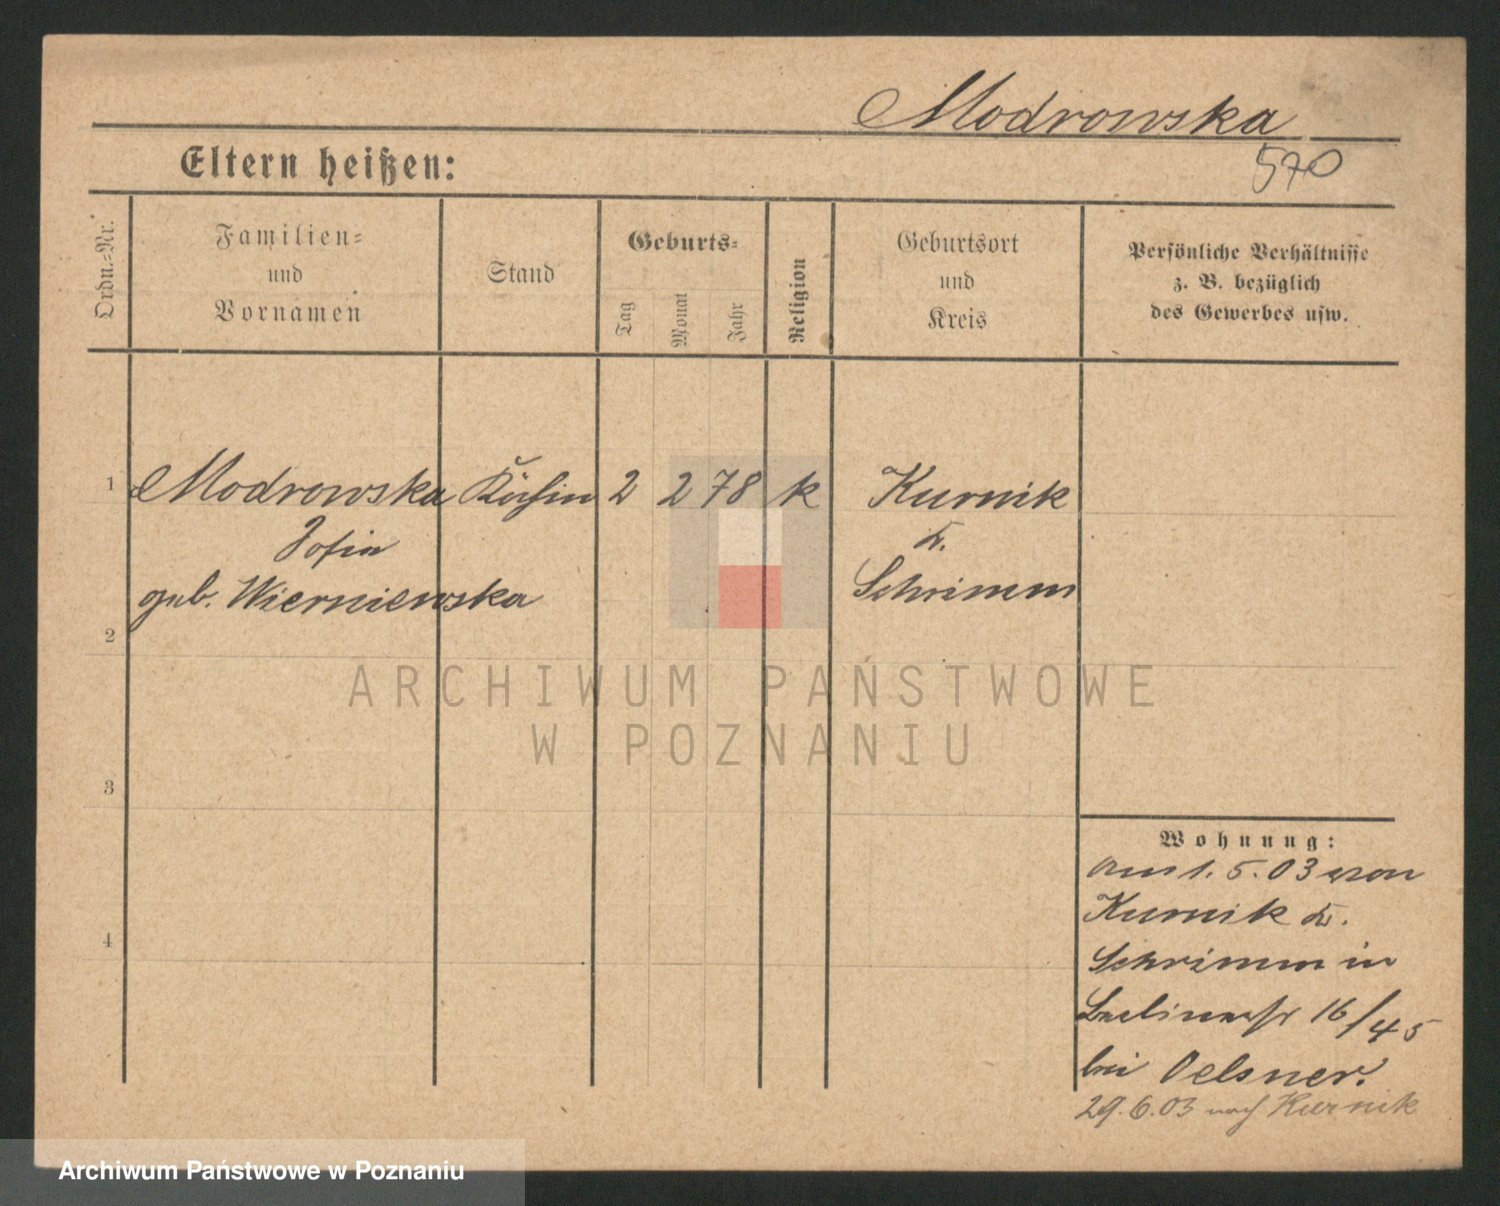 Modrowska
570
Eltern heißen:
Ordn.-Nr.
Familien-
und
Vornamen
Stand
Geburts-
Tag
Monat
Jahr
Religion
Geburtsort
und
Kreis
Persönliche Verhältnisse
z. B. bezüglich
des Gewerbes usw.
1 Modrowska Köchin 2 2 78 k Kurnik
Sofia
geb. Wierniewska
Schrimm
2
3
4
ARCHIWUM PAŃSTWOWE
W POZNANIU
Wohnung:
am 1. 5. 03 von
Kurnik
Schrimm in
Berlinerstr 16/45
bei Oelsner.
29. 6. 03 nach Kurnik
Archiwum Państwowe w Poznaniu